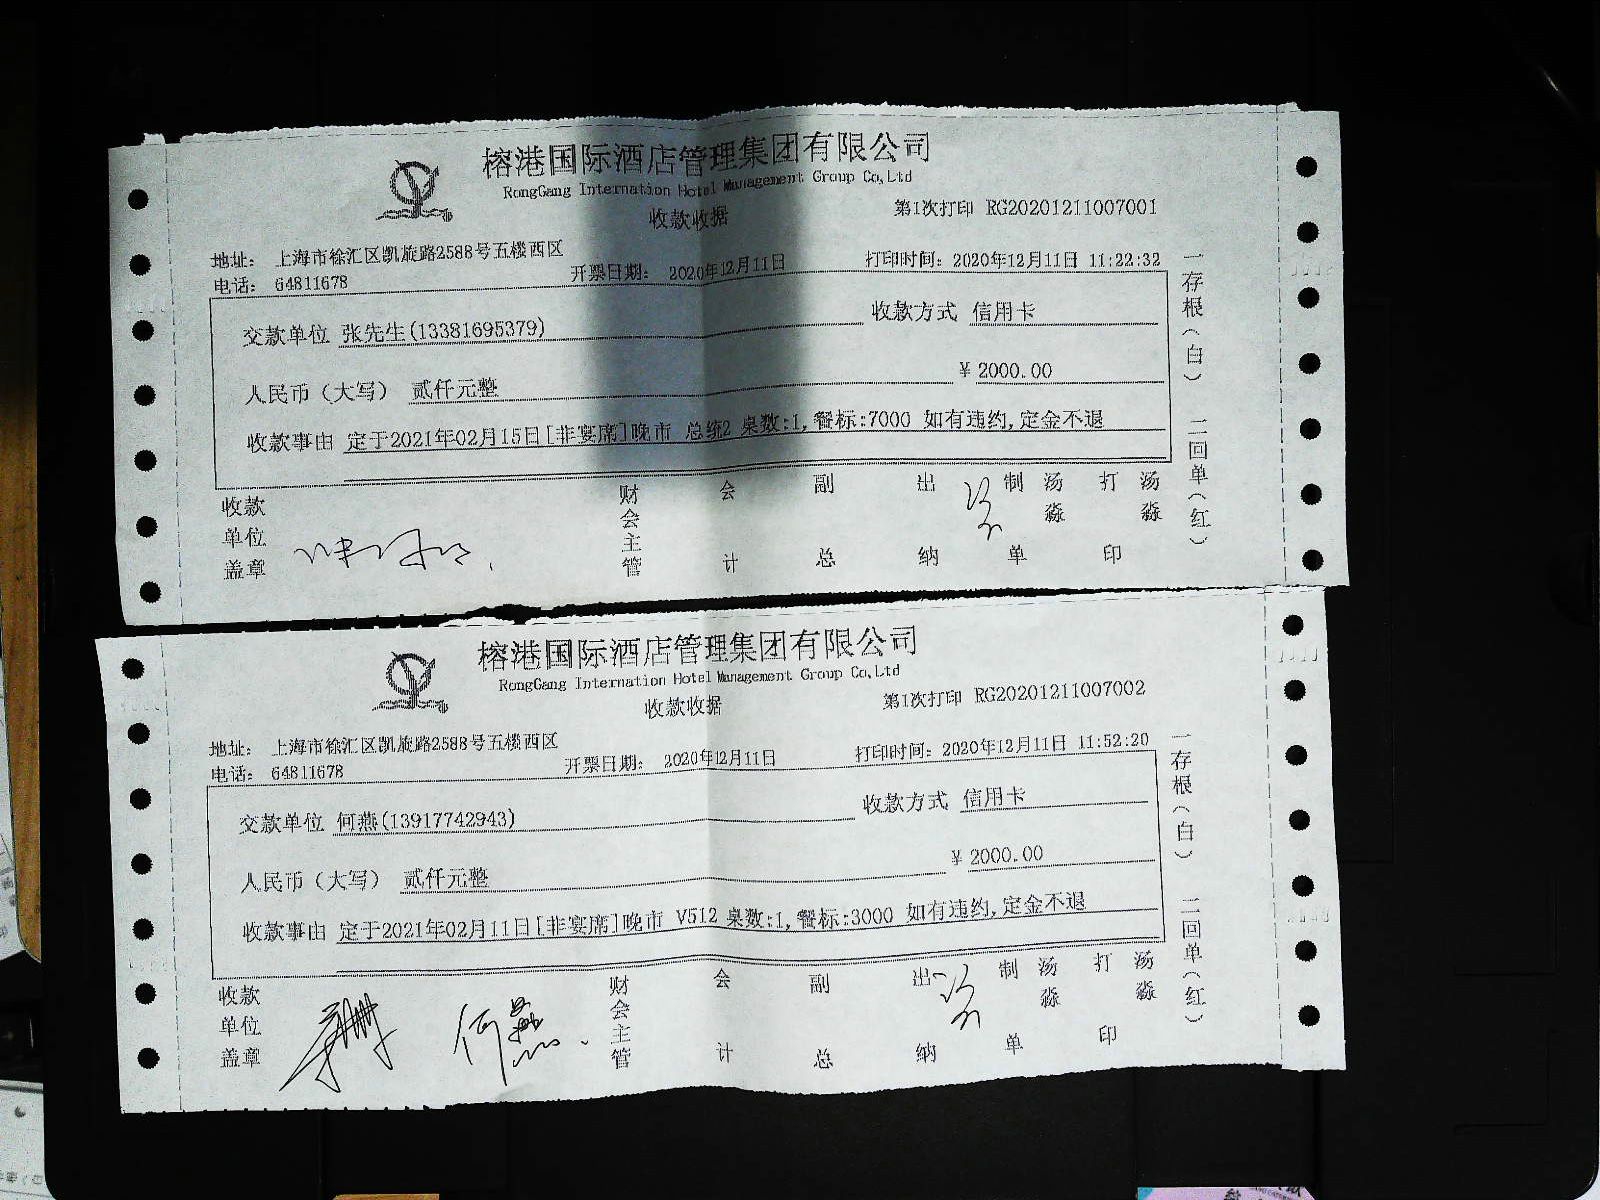 榕港国际酒店管理集团有限公司
RongGang Internation Hotel Management Group Co,Ltd
收款收据
第1次打印 RG20201211007001
地址: 上海市徐汇区凯旋路2588号五楼西区
电话: 64811678
开票日期: 2020年12月11日
打印时间: 2020年12月11日 11:22:32
交款单位 张先生(13381695379)
收款方式 信用卡
人民币(大写) 贰仟元整
¥ 2000.00
收款事由 定于2021年02月15日[非宴席]晚市 总统2 桌数:1,餐标:7000 如有违约,定金不退
收款单位盖章
财会主管
会计
副总
出纳
制单
汤淼
打印
汤淼
一存根(白) 二回单(红)
榕港国际酒店管理集团有限公司
RongGang Internation Hotel Management Group Co,Ltd
收款收据
第1次打印 RG20201211007002
地址: 上海市徐汇区凯旋路2588号五楼西区
电话: 64811678
开票日期: 2020年12月11日
打印时间: 2020年12月11日 11:52:20
交款单位 何燕(13917742943)
收款方式 信用卡
人民币(大写) 贰仟元整
¥ 2000.00
收款事由 定于2021年02月11日[非宴席]晚市 V512 桌数:1,餐标:3000 如有违约,定金不退
收款单位盖章
何燕
财会主管
会计
副总
出纳
制单
汤淼
打印
汤淼
一存根(白) 二回单(红)